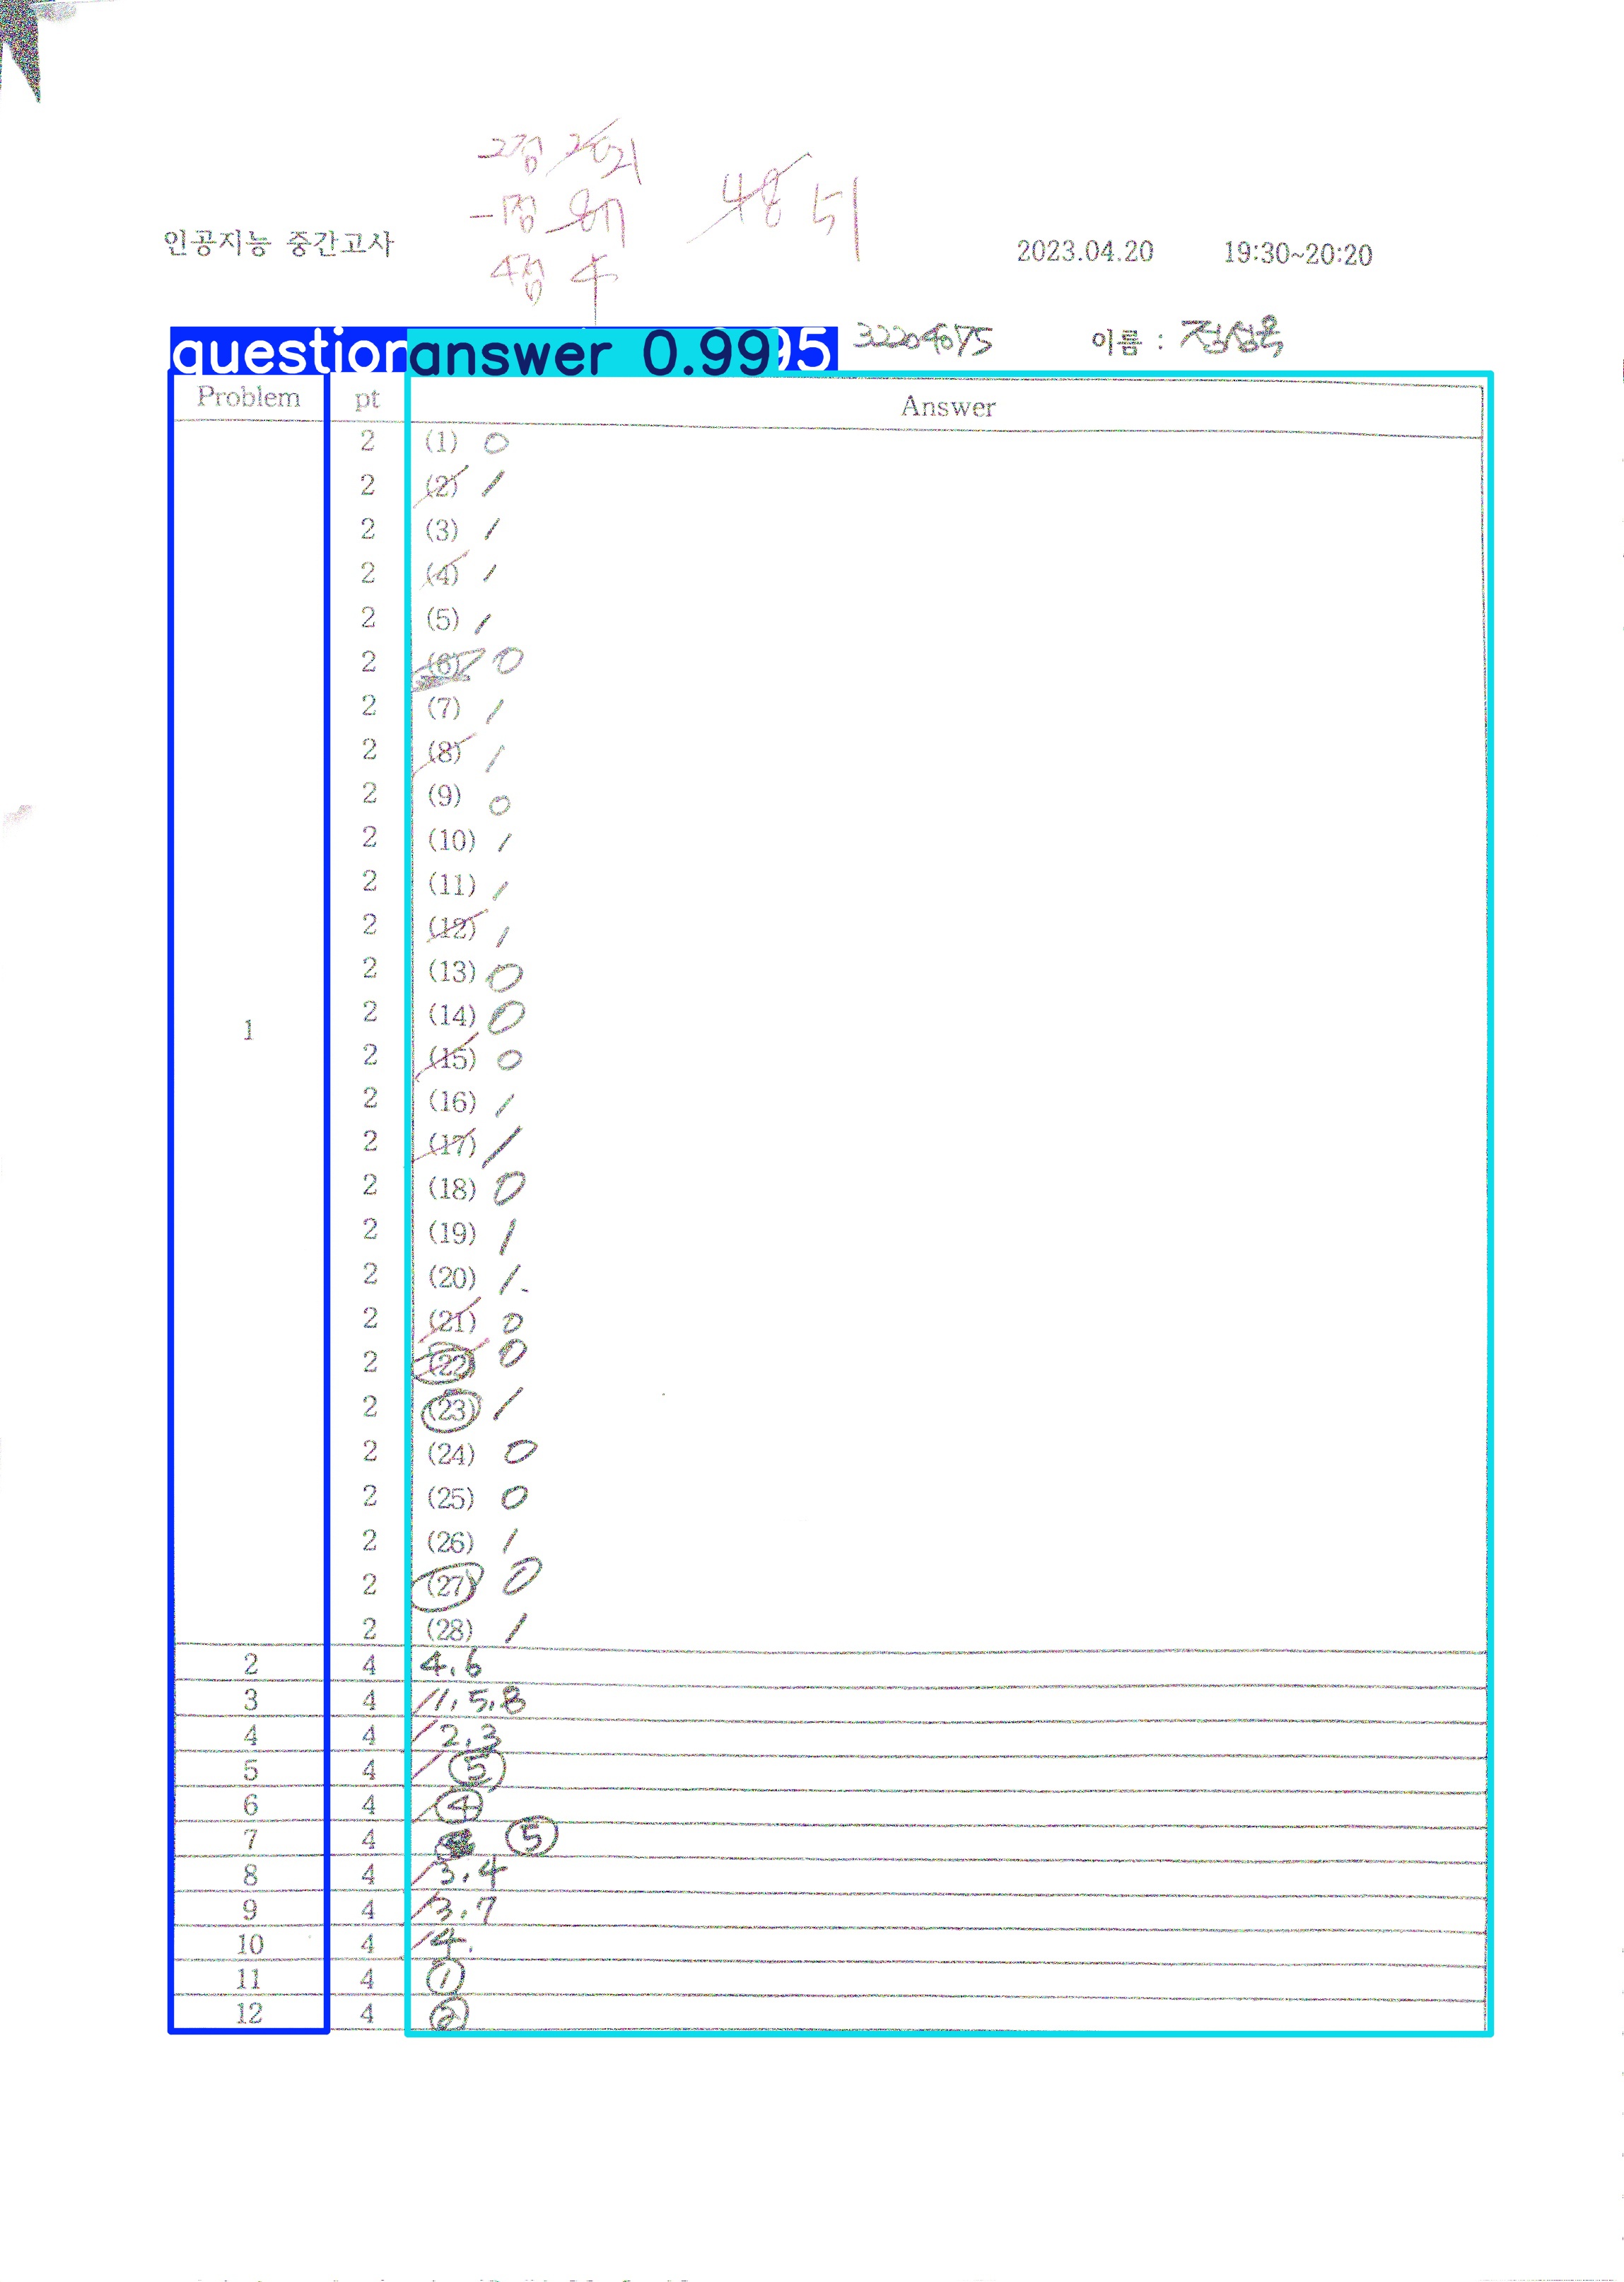 -2점 20 21
-1점 8개
48 51
4점 4
인공지능 중간고사 2023.04.20 19:30~20:20
question answer 0.99 95 32204075 이름 :
Problem pt Answer
2 (1) 0
2 (2) /
2 (3) /
2 (4) /
2 (5) /
2 (6) 0
2 (7) /
2 (8) /
2 (9) 0
2 (10) /
2 (11) /
2 (12) /
2 (13) 0
2 (14) 0
1
2 (15) 0
2 (16) /
2 (17) /
2 (18) 0
2 (19) /
2 (20) /.
2 (21) 0
2 (22) 0
2 (23) /
2 (24) 0
2 (25) 0
2 (26) /
2 (27) 0
2 (28) /
2 4 4.6
3 4 1.5.8
4 4 2.3
5 4 ⑤
6 4 ④
7 4 ⑤
8 4 3.4
9 4 3.7
10 4 4.
11 4 ①
12 4 ②